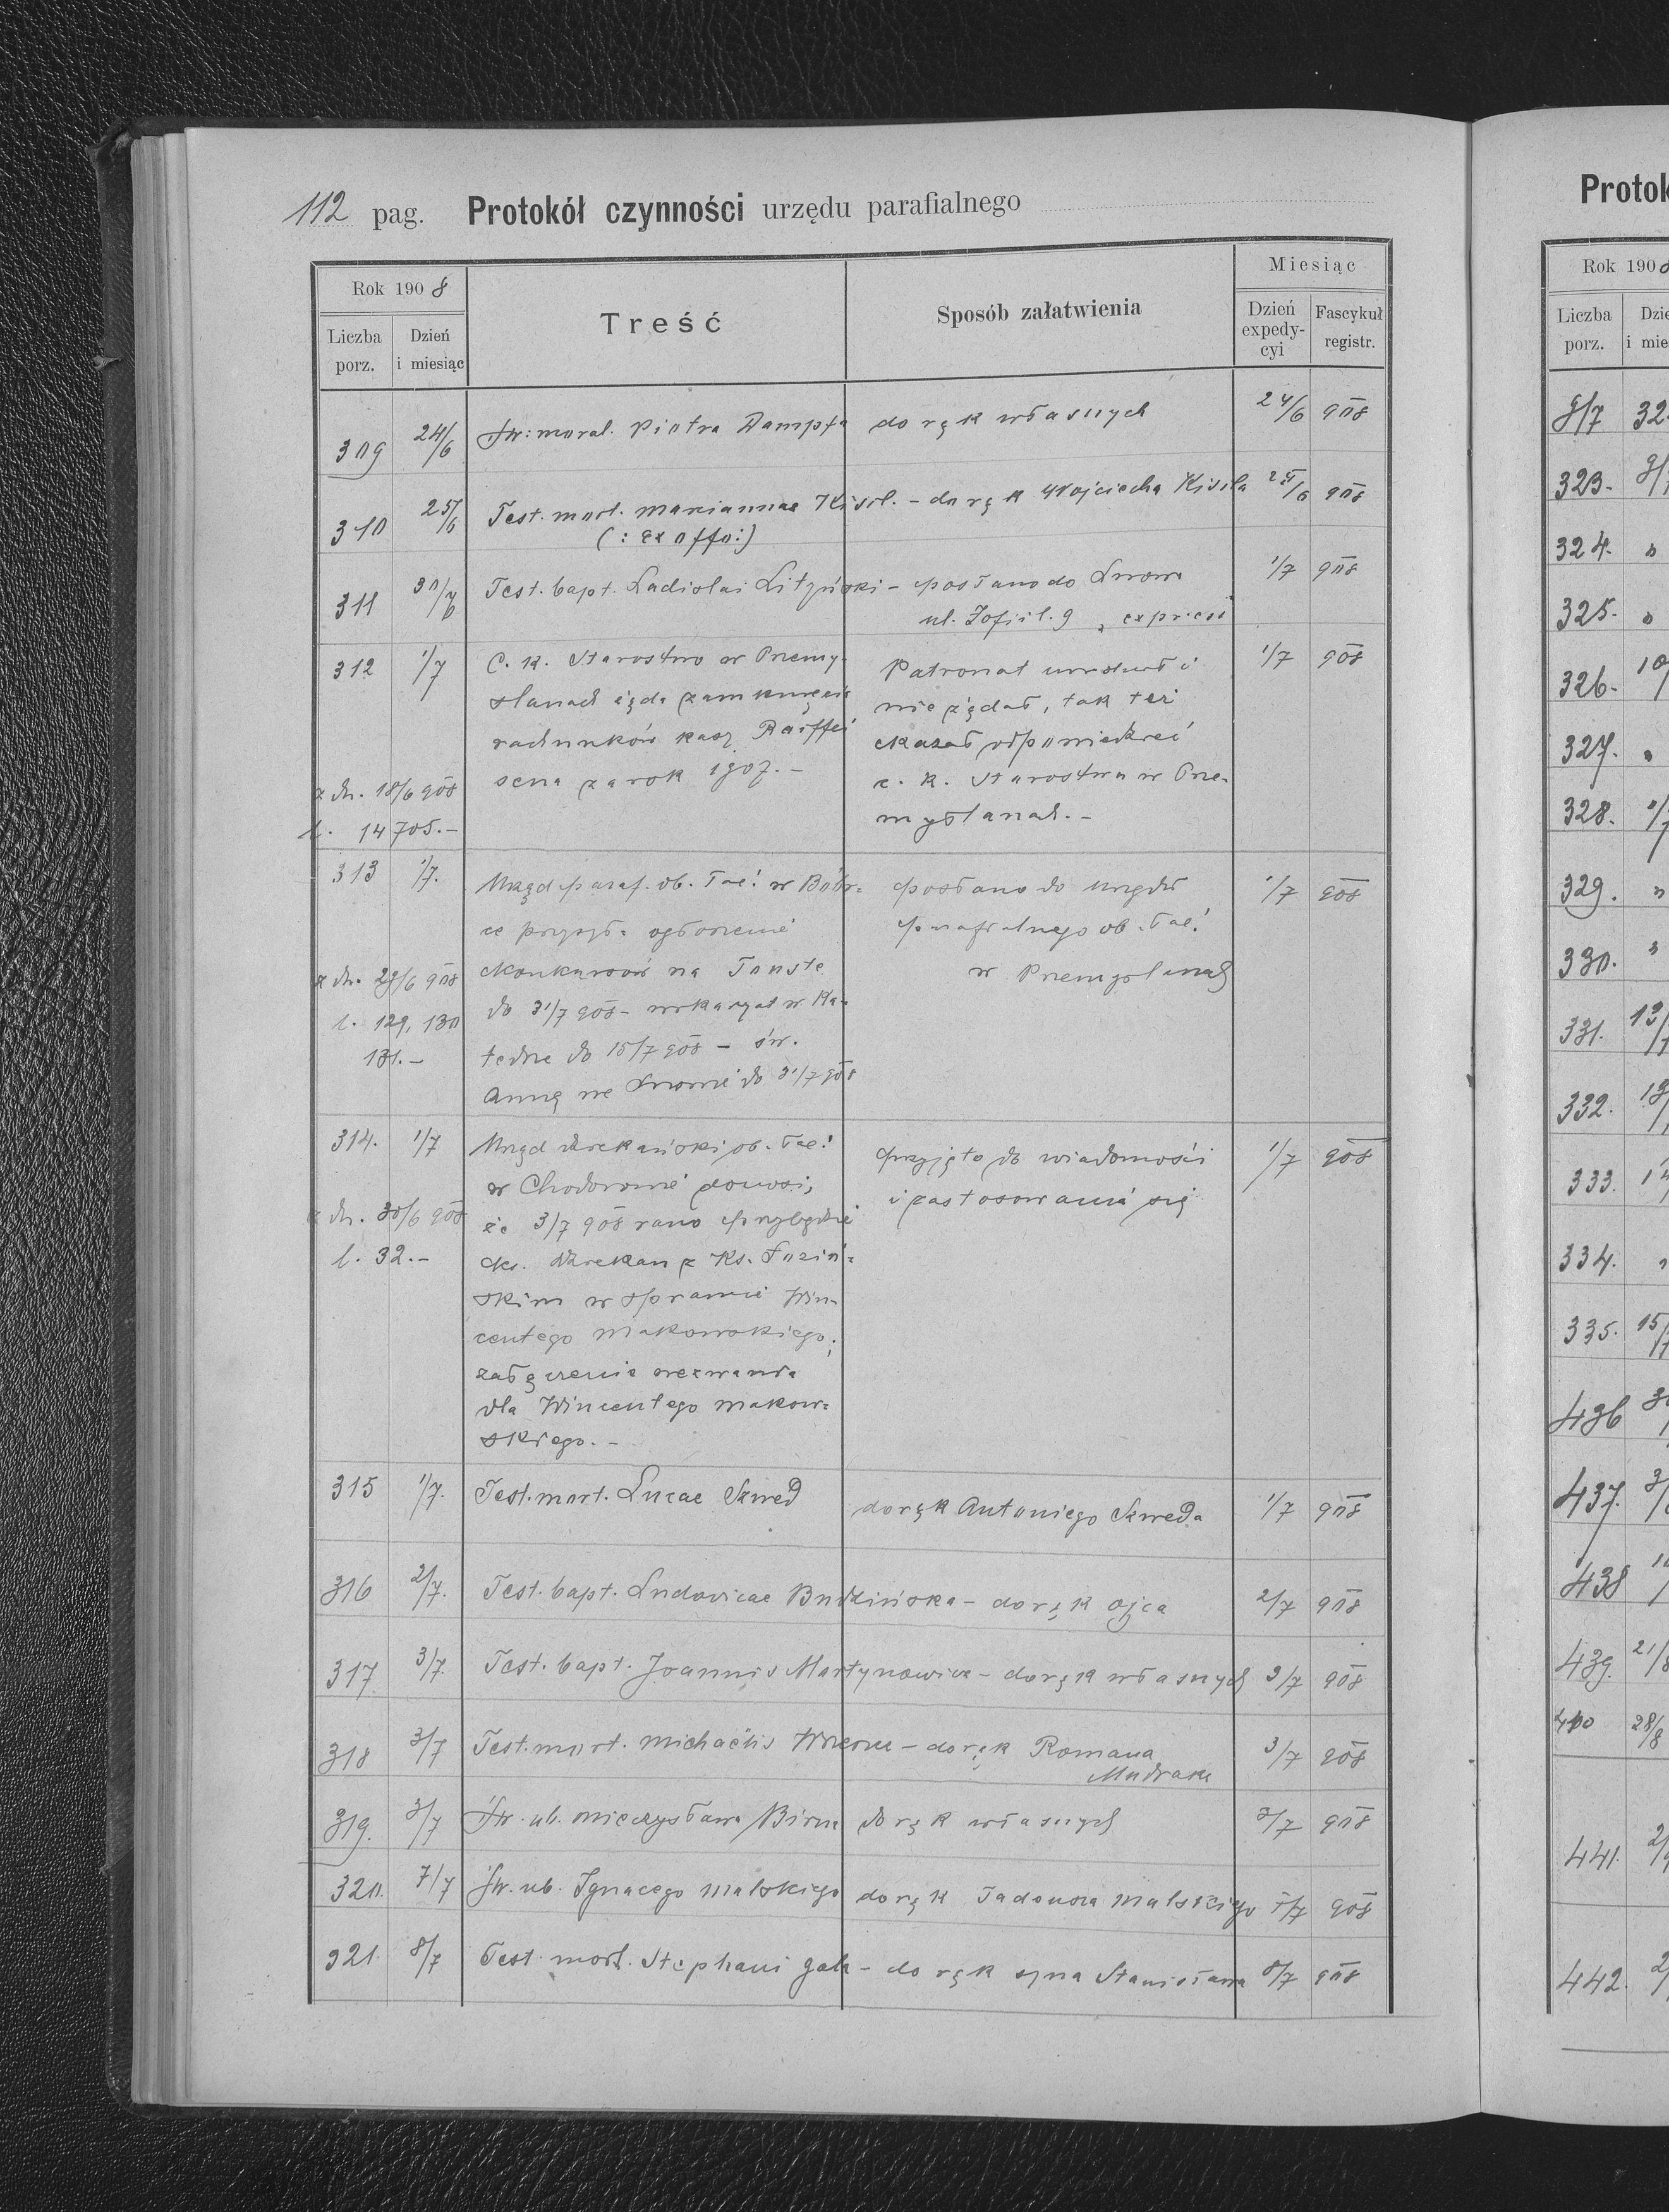 112 pag. Protokół czynności urzędu parafialnego
Rok 1908
Liczba porz.
Dzień i miesiąc
Treść
Sposób załatwienia
Miesiąc
Dzień expedycyi
Fascykuł registr.
309 24/6 Św: moral. Piotra do rąk własnych 24/6 908
310 25/6 Test. mort. Mariannae Kisil. - do rąk Wojciecha Kisila 25/6 908
(: ex offo :)
311 30/6 Test. bapt. Ladislai - posłano do Lwowa 1/7 908
ul. Zofii l. 9
312 1/7 C. k. Starostwo w Przemy- 1/7 908
ślanach żąda zamknięcia
rachunków kasy Raiffei
sena za rok 1907. -
z dn. 18/6 908
l. 14705. -
Patronat
nie żądał, tak też
kazał odpowiedzieć
c. k. Starostwu w Prze-
myślanach. -
313 1/7. Urząd paraf. ob. łać. w Bóbr- 1/7 908
ce przysyła ogłoszenie
konkursów na Touste
do 31/7 908 - wikaryat w Ka-
tedrze do 15/7 908 - św.
Annę we Lwowie do 31/7 908
z dn. 29/6 908
l. 129, 130
131. -
posłano do urzędu
parafialnego ob. łać.
w Przemyślanach
314. 1/7 Urząd dziekański ob. łać. 1/7 908
w Chodorowie donosi,
że 3/7 908 rano przybędzie
ks. dziekan z ks.
skim w sprawie Win-
centego Makowskiego;
załączenie wezwania
dla Wincentego Makow-
skiego. -
z dn. 30/6 908
l. 32. -
przyjęto do wiadomości
i zastosowania się
315 1/7. Test. mort. Lucae Szwed do rąk Antoniego Szweda 1/7 908
316 2/7. Test. bapt. Ludovicae Budzińska - do rąk ojca 2/7 908
317 3/7. Test. bapt. Joannis Martynowicz - do rąk własnych 3/7 908
318 3/7 Test. mort. Michaëlis - do rąk Romana 3/7 908
Mudraka
319. 3/7 Św. ub. Mieczysława Birna do rąk własnych 3/7 908
320. 7/7 Św. ub. Ignacego Malskiego do rąk Tadeusza Malskiego 7/7 908
321. 8/7 Test. mort. Stephani Gala - do rąk syna Stanisława 8/7 908
Protok
Rok 1908
Liczba porz.
Dzie
i mie
8/7 32
323. 9/
324. "
325. "
326. 10/
327. "
328.
329. "
330. "
331. 13/
332.
333.
334. "
335. 15/
436
437. 3/
438
439. 21/8
28/8
441. 2/
442. 2/